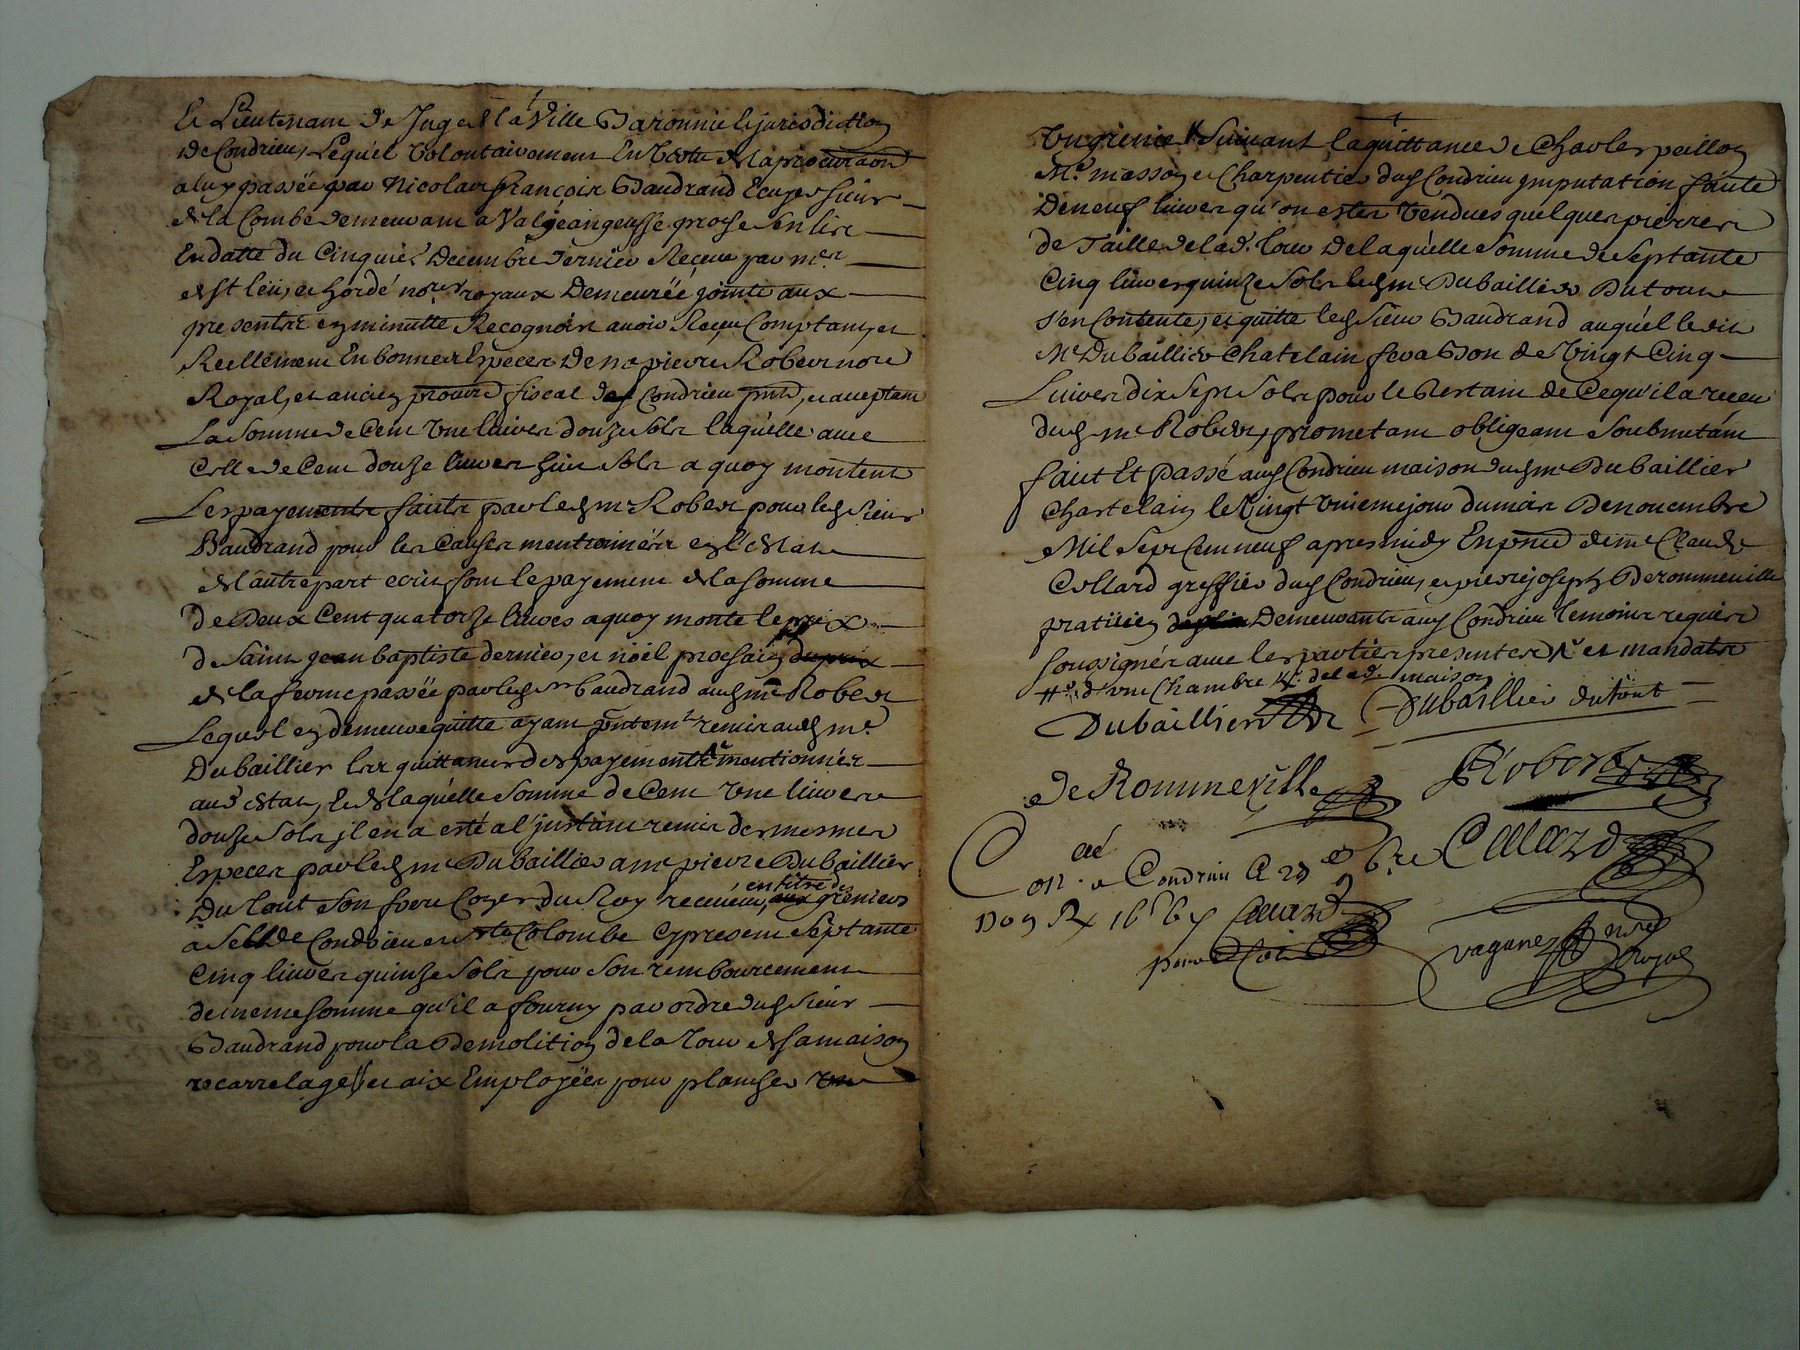 et Lieutenant de Juge de la Ville Baronnie et jurisdiction
de Condrieu, Lequel volontairement En Vertu de la procuraon
a luy passée par Nicolas françois Baudrand Ecuyer sieur
de la Combe demeurant a
En datte du Cinquie. Decembre dernier Receue par mes.
et hordé nores. royaux Demeurée jointe aux
presentes en minutte Recognoit avoir Receu Comptant, et
Reellement En bonnes Especes De me pierre Robert nore
Royal, et ancien procur fiscal dud Condrieu pnt, et acceptant
La somme de Cent Une livres douze sols laquelle avec
Celle de Cent douze livres huit sols a quoy montent
Les payements faits par led me Robert pour led sieur
Baudrand pour les Causes mentionnées en l'Estat
de l'autre part ecrit, font le payement de la somme
de Deux Cent quatorze livres a quoy monte le prix
de Saint jean baptiste dernier, et noël prochain
de la ferme passée par led sr baudrand aud me Robert
Lequel en demeure quitte ayant pntemt remis aud me.
Dubaillier les quittances des payements mentionnés
aud Estat, Et de laquelle Somme de Cent Une livres
douze Sols il en a esté a l'instant remis des mesmes
Especes par led me Dubaillier a me pierre Dubaillier
Du Tout Son frere Coner du Roy receveur en titre des greniers
a Sel de Condrieu et Ste Colombe Cy present Septante
Cinq livres quinze Sols pour Son remboursement
de meme somme qu'il a fourny par ordre dud Sieur
Baudrand pour la Demolition de la Tour de sa maison
recarrelage, et aix Employées pour plancher Une
Suivant la quittance de Charles peillon
Me. masson et Charpentier dud Condrieu imputation faite
De neuf livres qu'on estes Vendues quelques pierres
de Taille de lad. Tour De laquelle Somme de Septante
Cinq livres quinze Sols led me Dubaillier Dutout
s'en Contente, et quitte led Sieur Baudrand auquel ledit
Me Dubaillier Chatelain fera Bon de Vingt Cinq
Livres dix Sept Sols pour le Restant de Ce qu'il a receu
dud me Robert, prometant obligeant Soubmetant
fait Et Passé aud Condrieu maison dud me Dubaillier
Chastelain le Vingt Unieme jour du mois De novembre
Mil Sept Cent neuf apres midy En pnce de me Claude
Collard greffier dud Condrieu, et pierre joseph De rommeville
praticien Demeurants aud Condrieu temoins requis
Soussignés avec les parties presentes et mandats
d'une Chambre de lad. maison
Dubaillier Dubaillier dutout
De Rommeville Robert
Con.lé a Condrieu Ce 29e 9bre Collard
1709 Rx Collard
royal